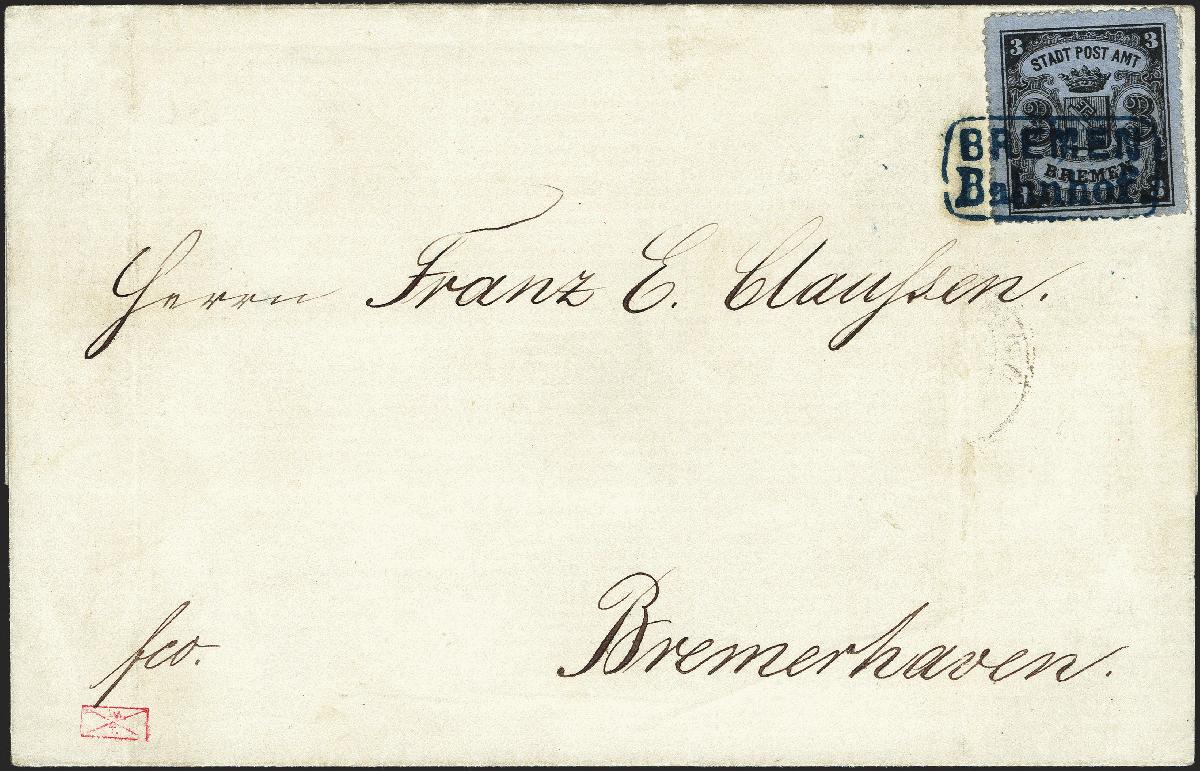 3 3
STADT POST AMT
3 3
BREMEN
BREMEN
Bahnhof
Herrn Franz E. Claußen.
fco.
Bremerhaven.